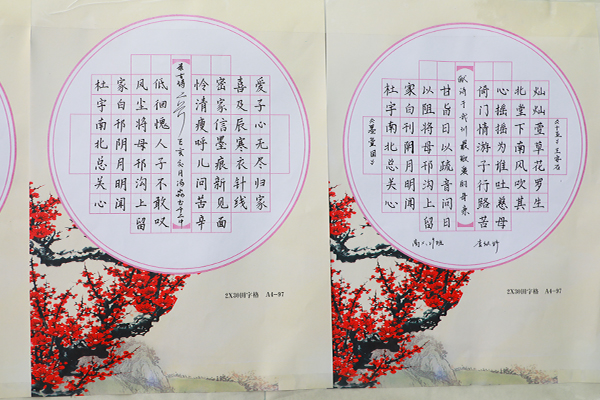 爱子心无尽归家
喜及辰寒衣针线
密家信墨痕新见面
怜清瘦呼儿问苦辛
低徊愧人子不敢叹
风尘将母邗沟上留
家白邗阴月明闲
杜宇南北总关心
2X30田字格 A4-97
灿灿萱草花罗生
北堂下南风吹其
心摇摇为谁吐慈母
倚门情游子行路苦
献诗于我们最敬爱的母亲
甘旨日以疏音问日
以阻将母邗沟上留
家白刊阴月明闲
杜宇南北总关心
《墨萱图》
2X30田字格 A4-97